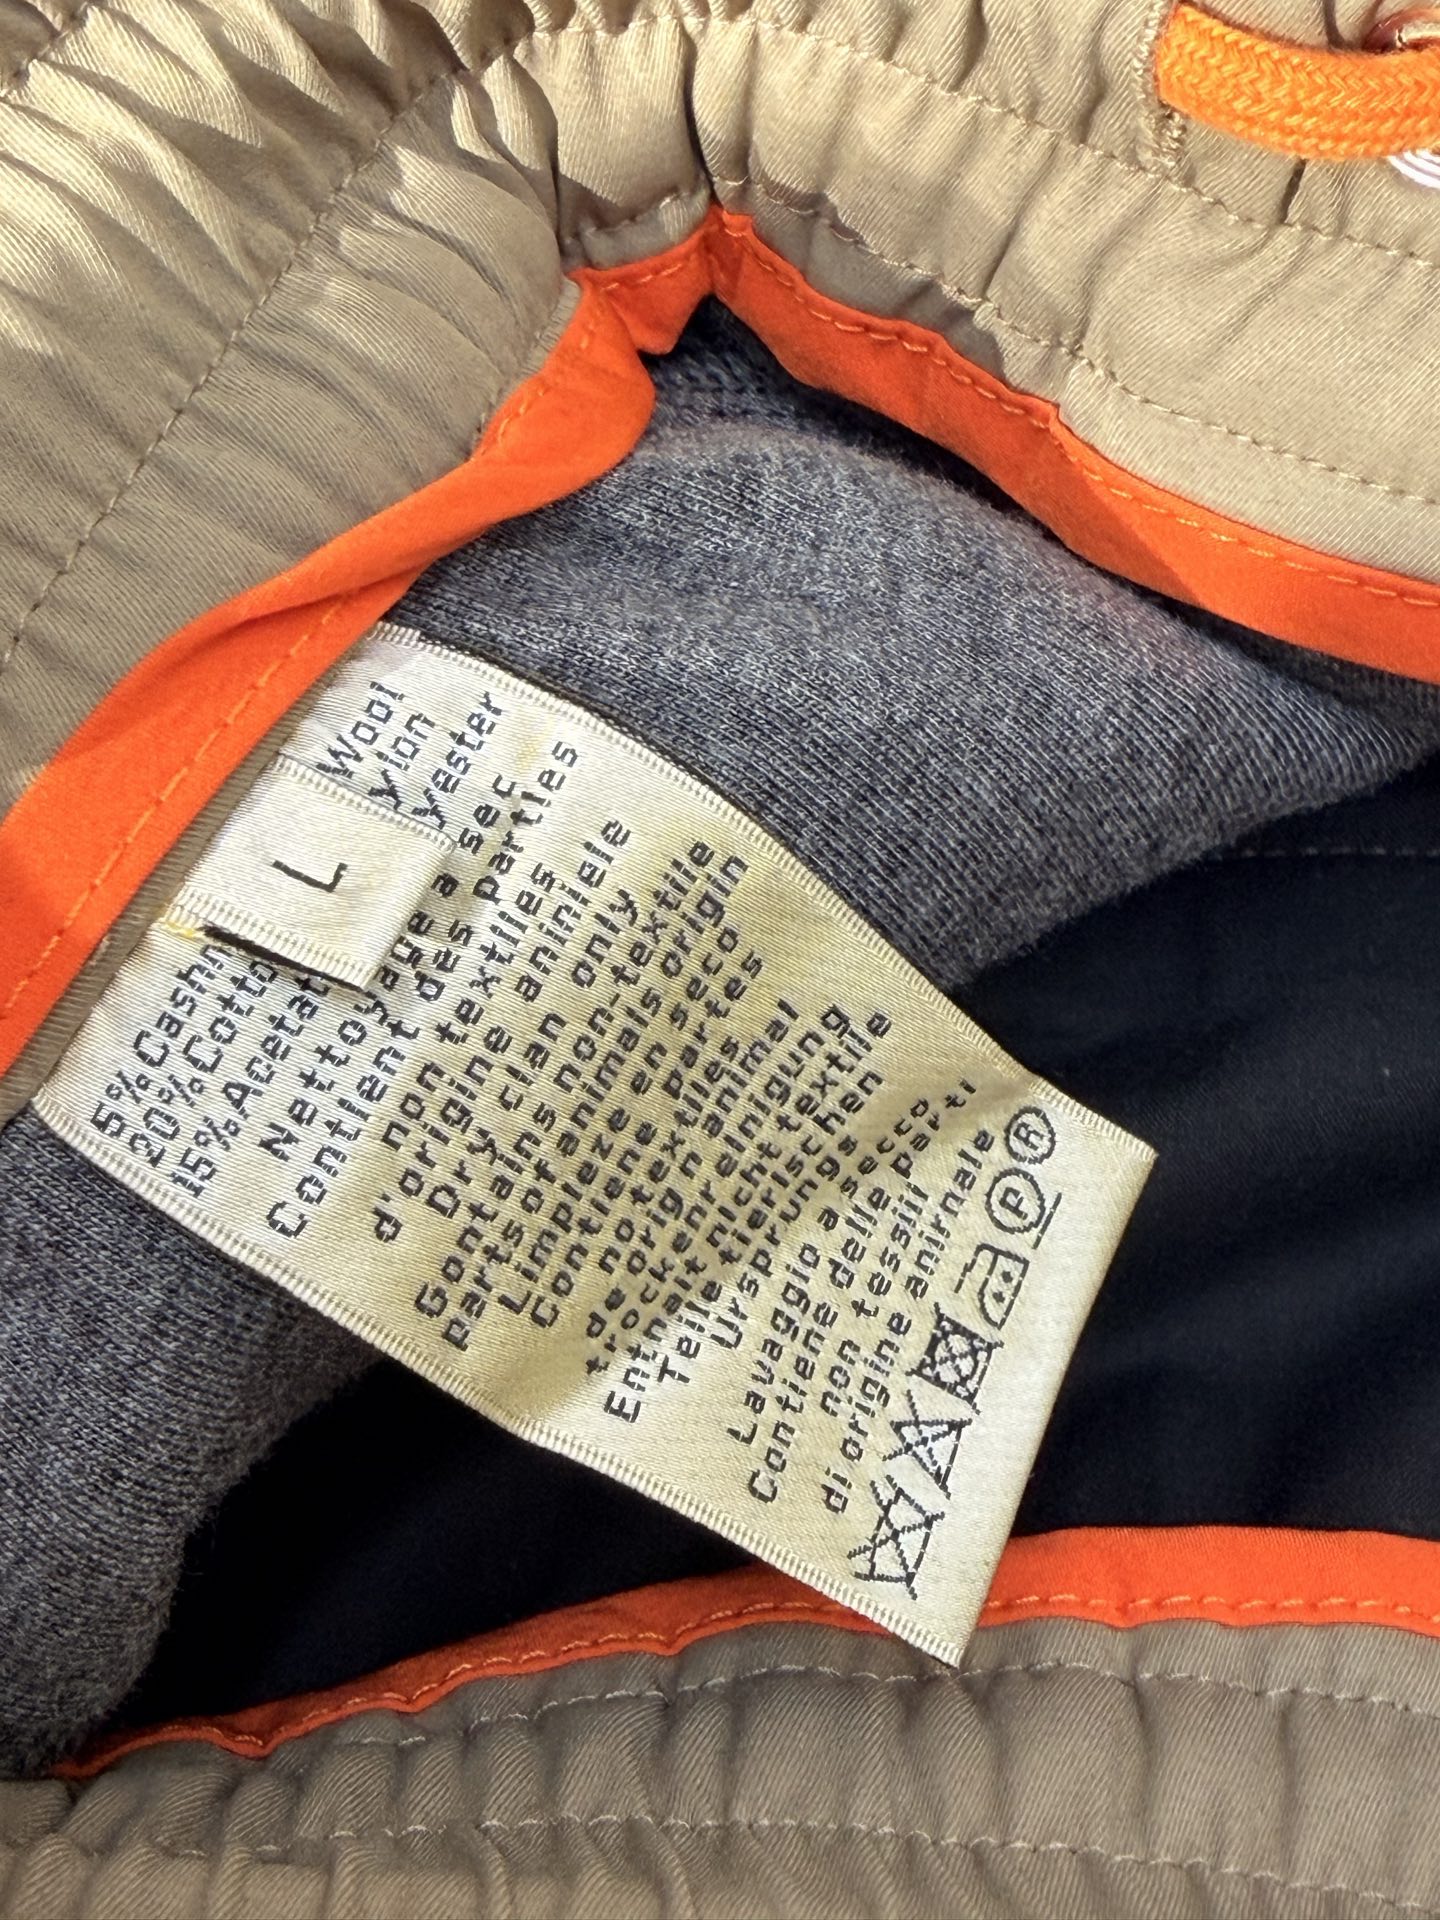 L
Wool
ylon
yester
5%Cashr
20%Cotto
15%Acetat
Nettoyage a sec
Contient des parties
d'non textiles
origine aniniele
Dry clan only
Gontains non-textile
partsofanimals origin
Limpieze en seco
Contiene partes
de no textiles
origen animal
trocken reinigung
Entnalt nicht textile
Teile tierischen
Ursprungs
Lavaggio a secco
Contiene delle parti
non tessili
di origine anirnale
P
R